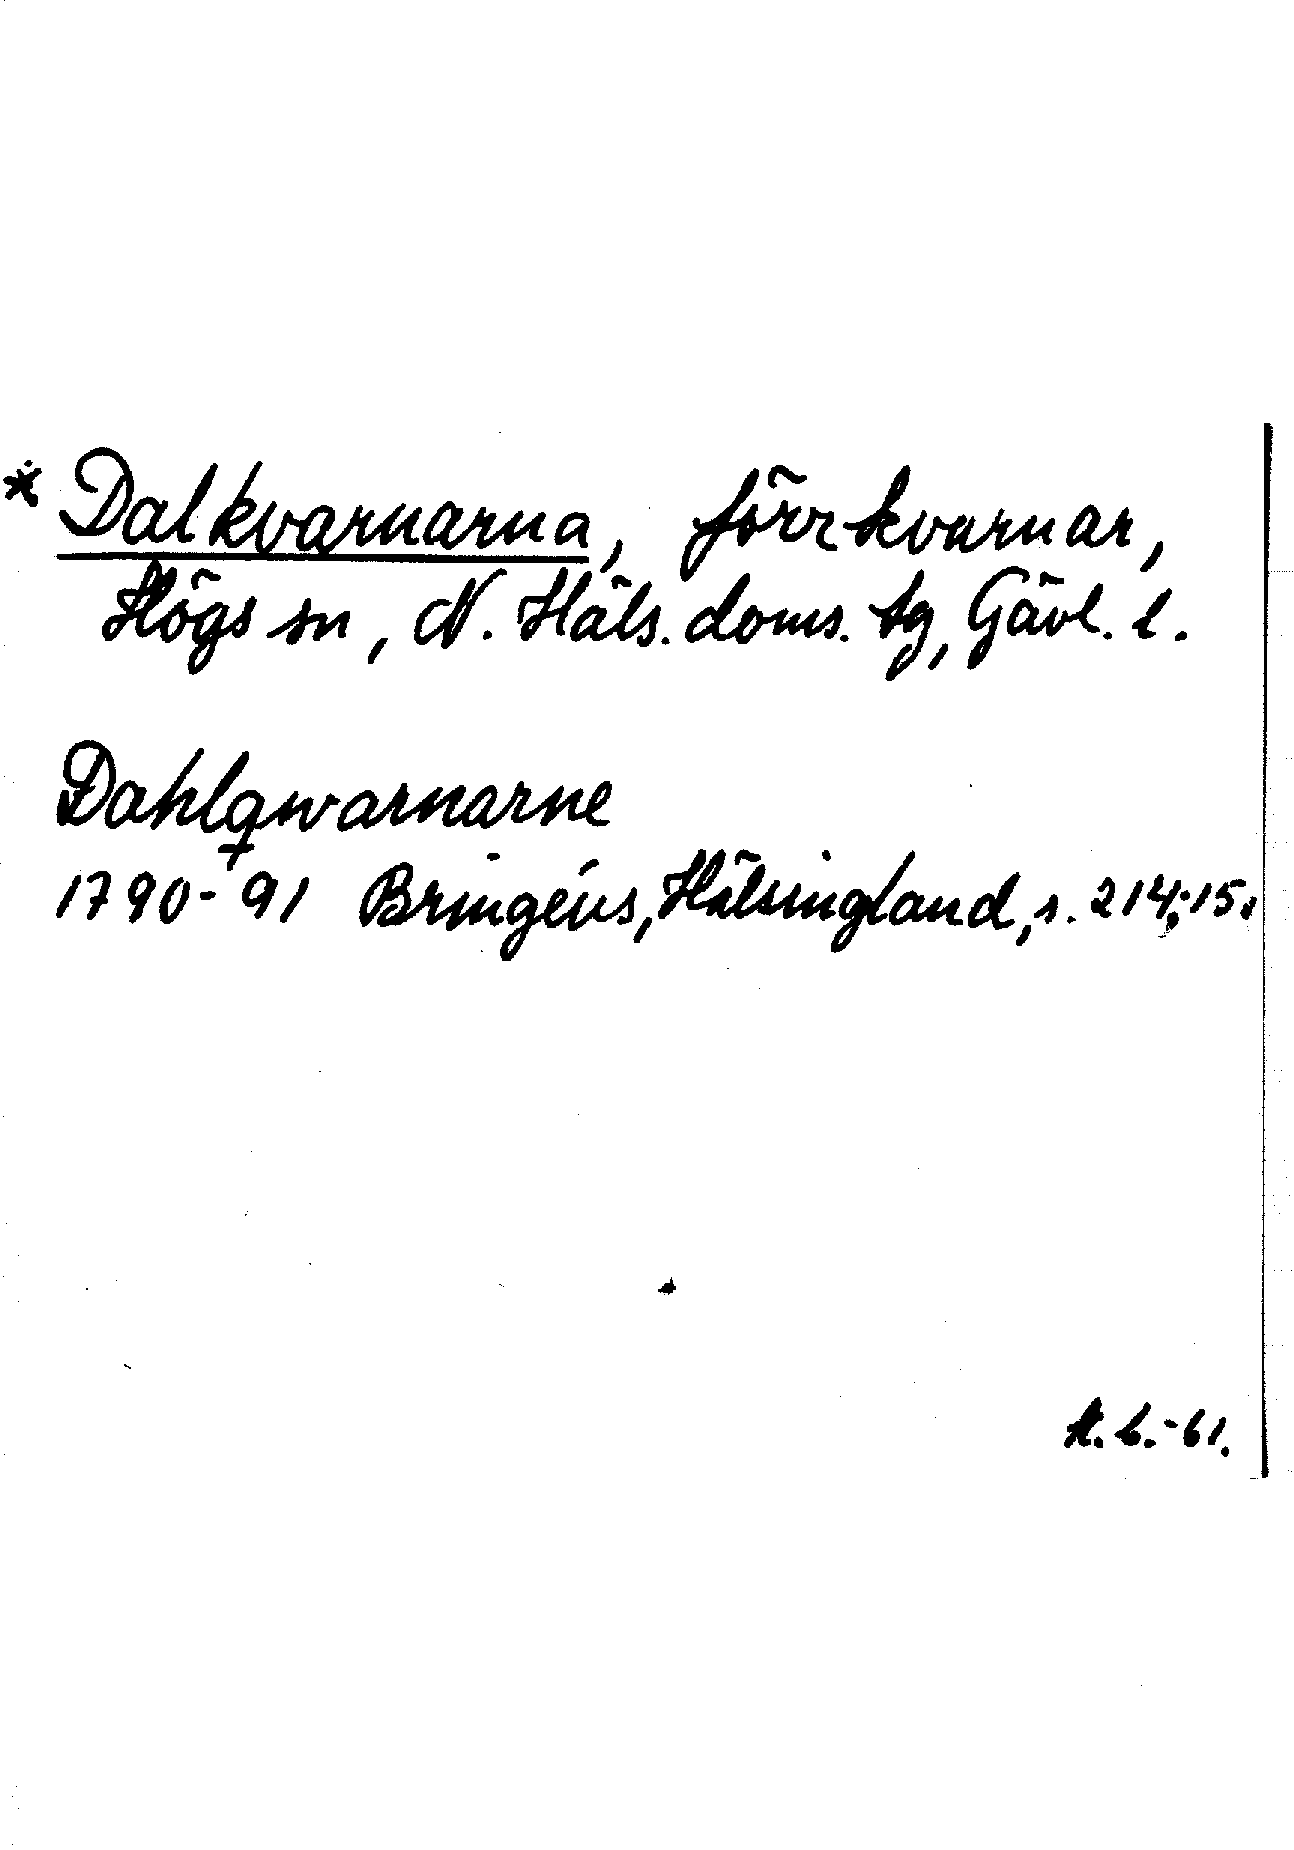 * Dalkvarnarna, förr kvarnar,
Högs sn, N. Häls. doms. tg, Gävl. l.
Dahlqwarnarne
1790-91 Bringéus, Hälsingland, s. 214, 15.
-61.